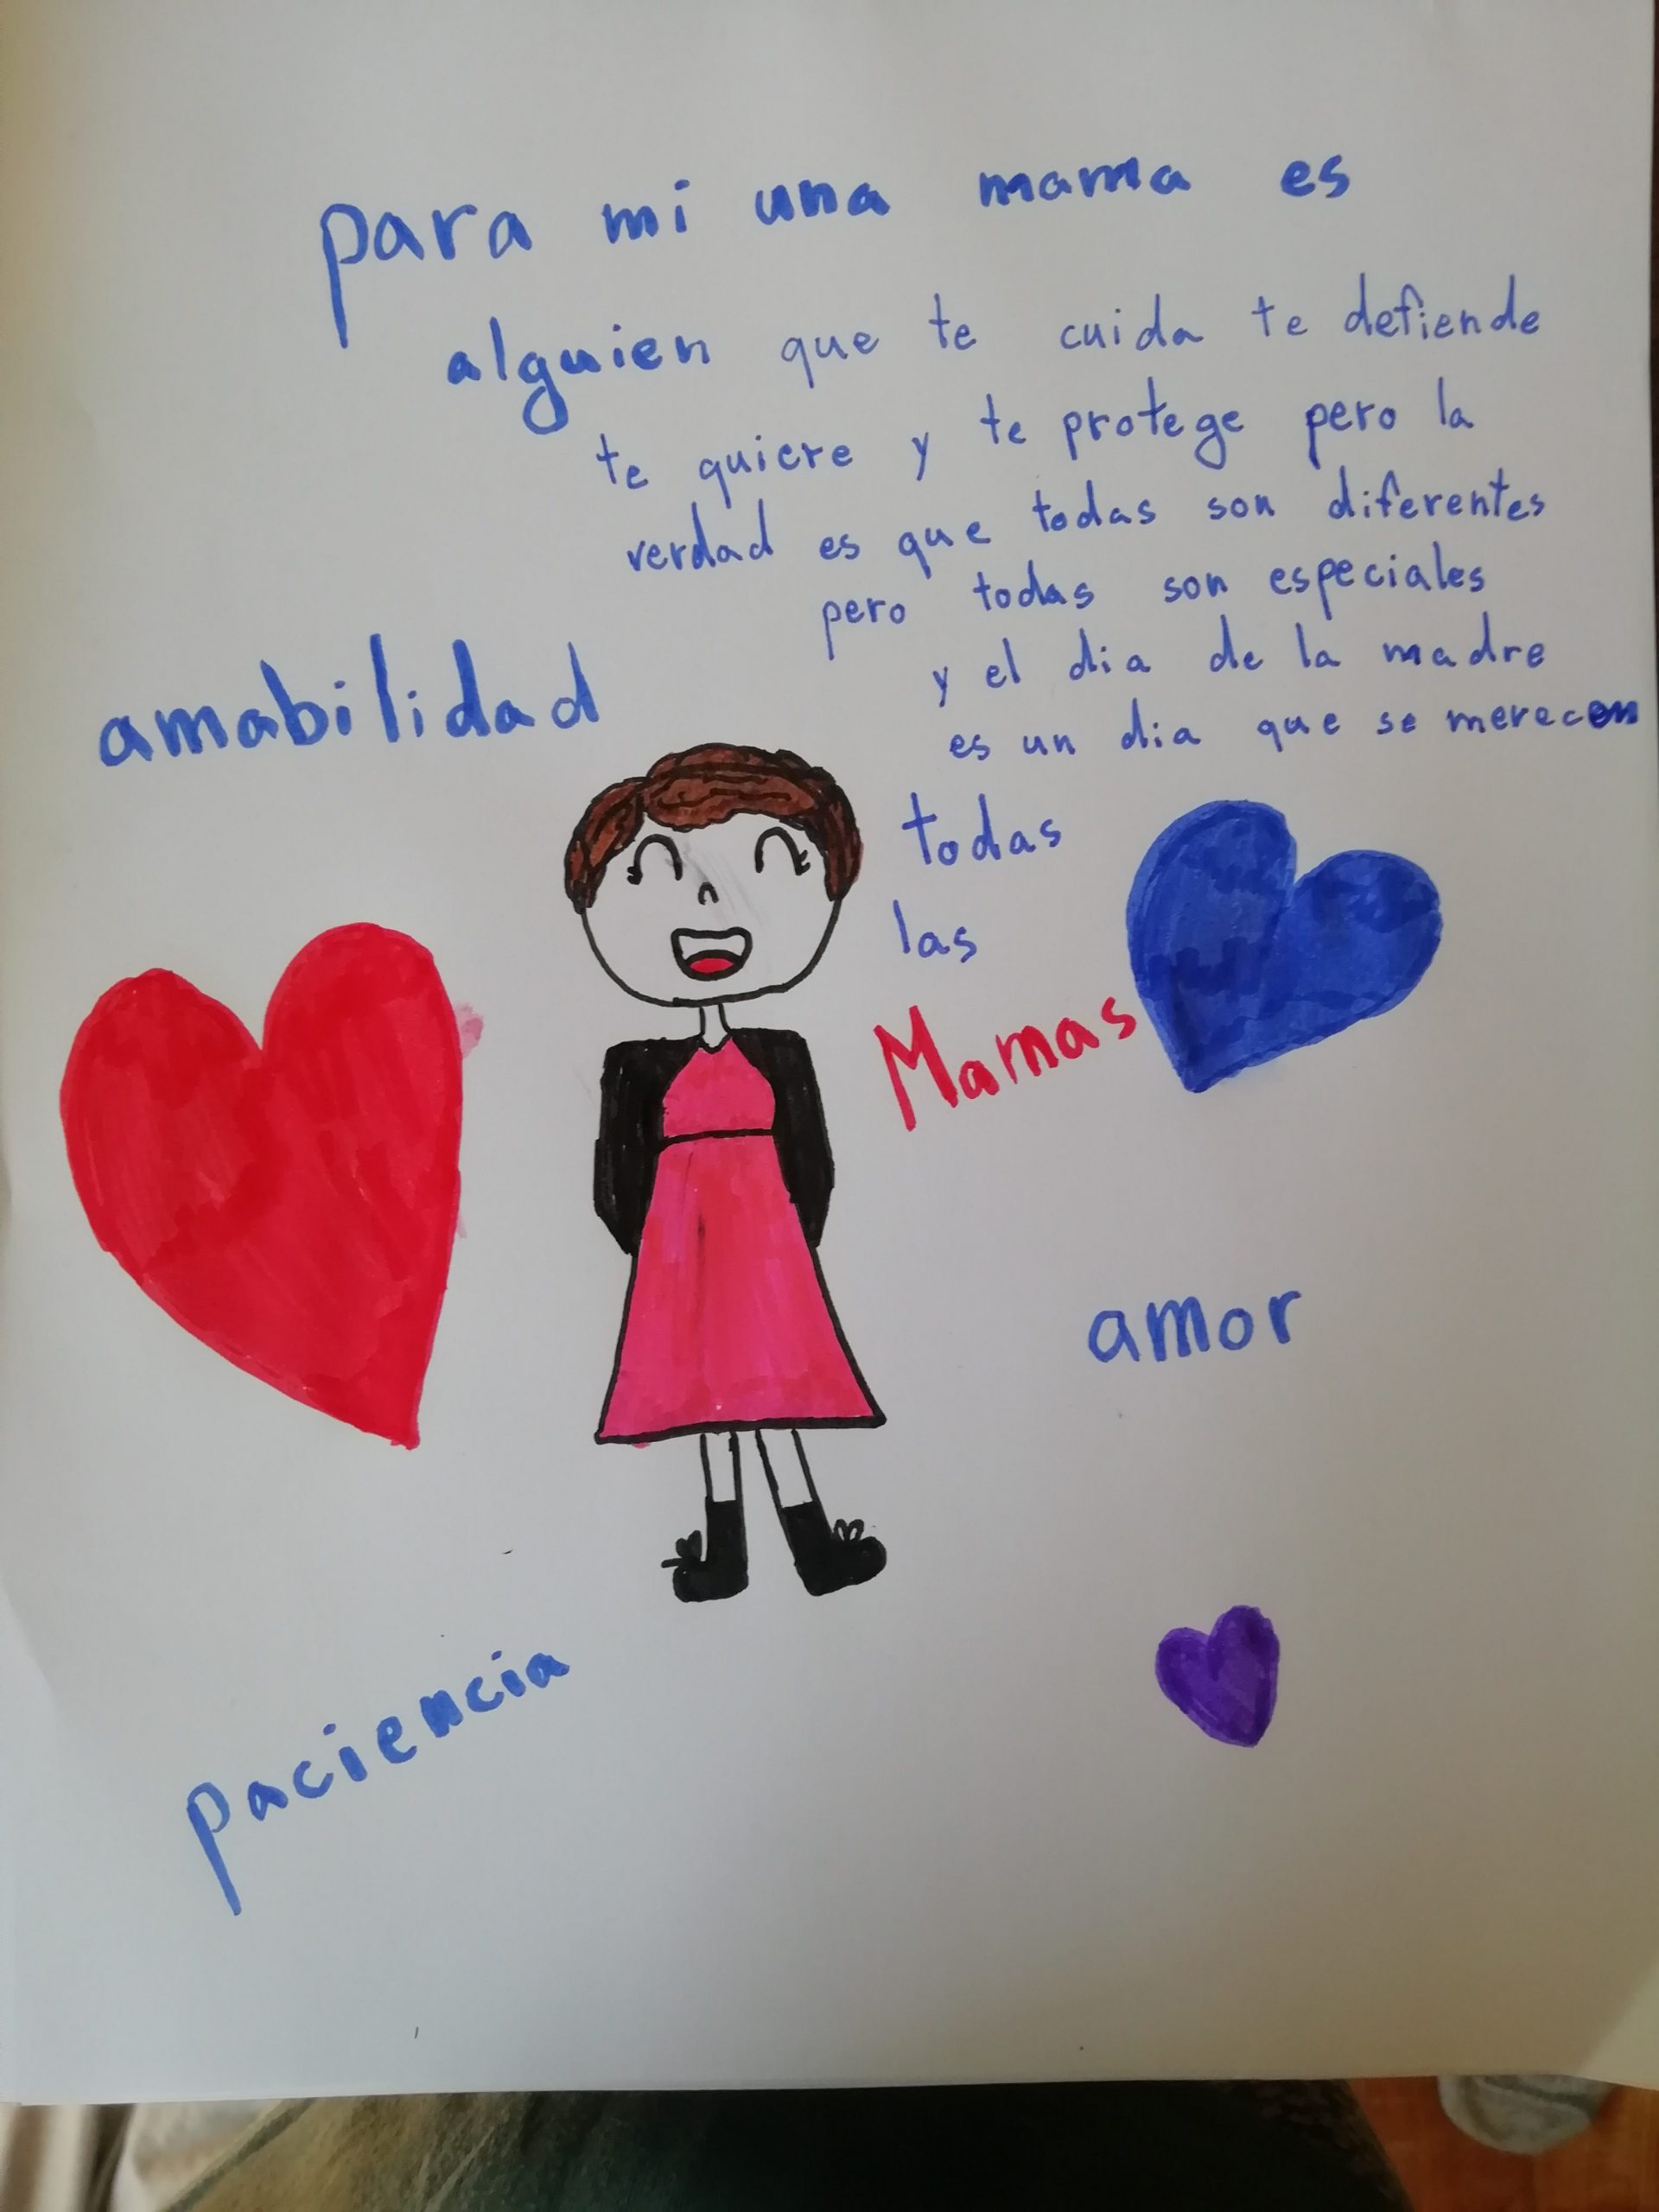 para mi una mama es
alguien que te cuida te defiende
te quiere y te protege pero la
verdad es que todas son diferentes
pero todas son especiales
y el dia de la madre
es un dia que se merecen
todas
las
Mamas
amabilidad
amor
paciencia